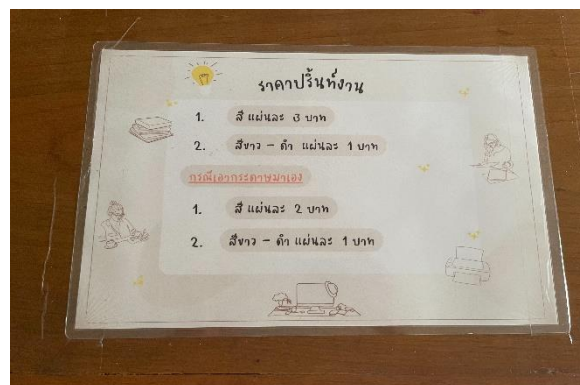 ราคาปริ้นท์งาน
1. สี แผ่นละ 3 บาท
2. สีขาว - ดำ แผ่นละ 1 บาท
กรณีเอากระดาษมาเอง
1. สี แผ่นละ 2 บาท
2. สีขาว - ดำ แผ่นละ 1 บาท